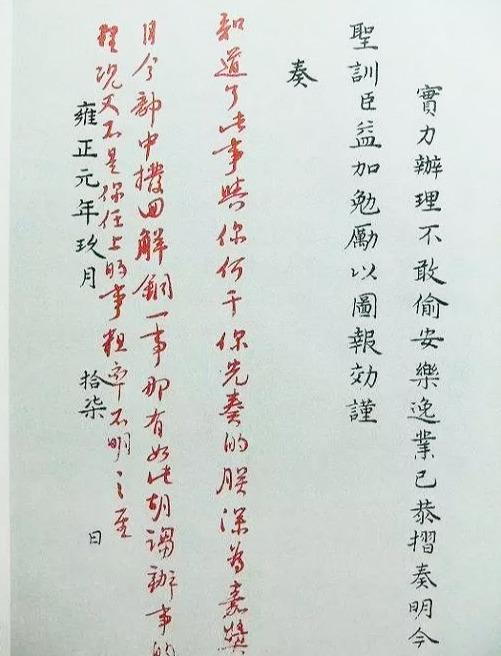 實力辦理不敢偷安樂逸業已恭摺奏明今
聖訓臣益加勉勵以圖報効謹
奏
知道了此事與你何干你先奏的朕深為嘉獎
目今部中撥回解銅一事那有如此胡謅辦事的
理况又不是你任上的事粗率不明之至
雍正元年玖月 拾柒 日